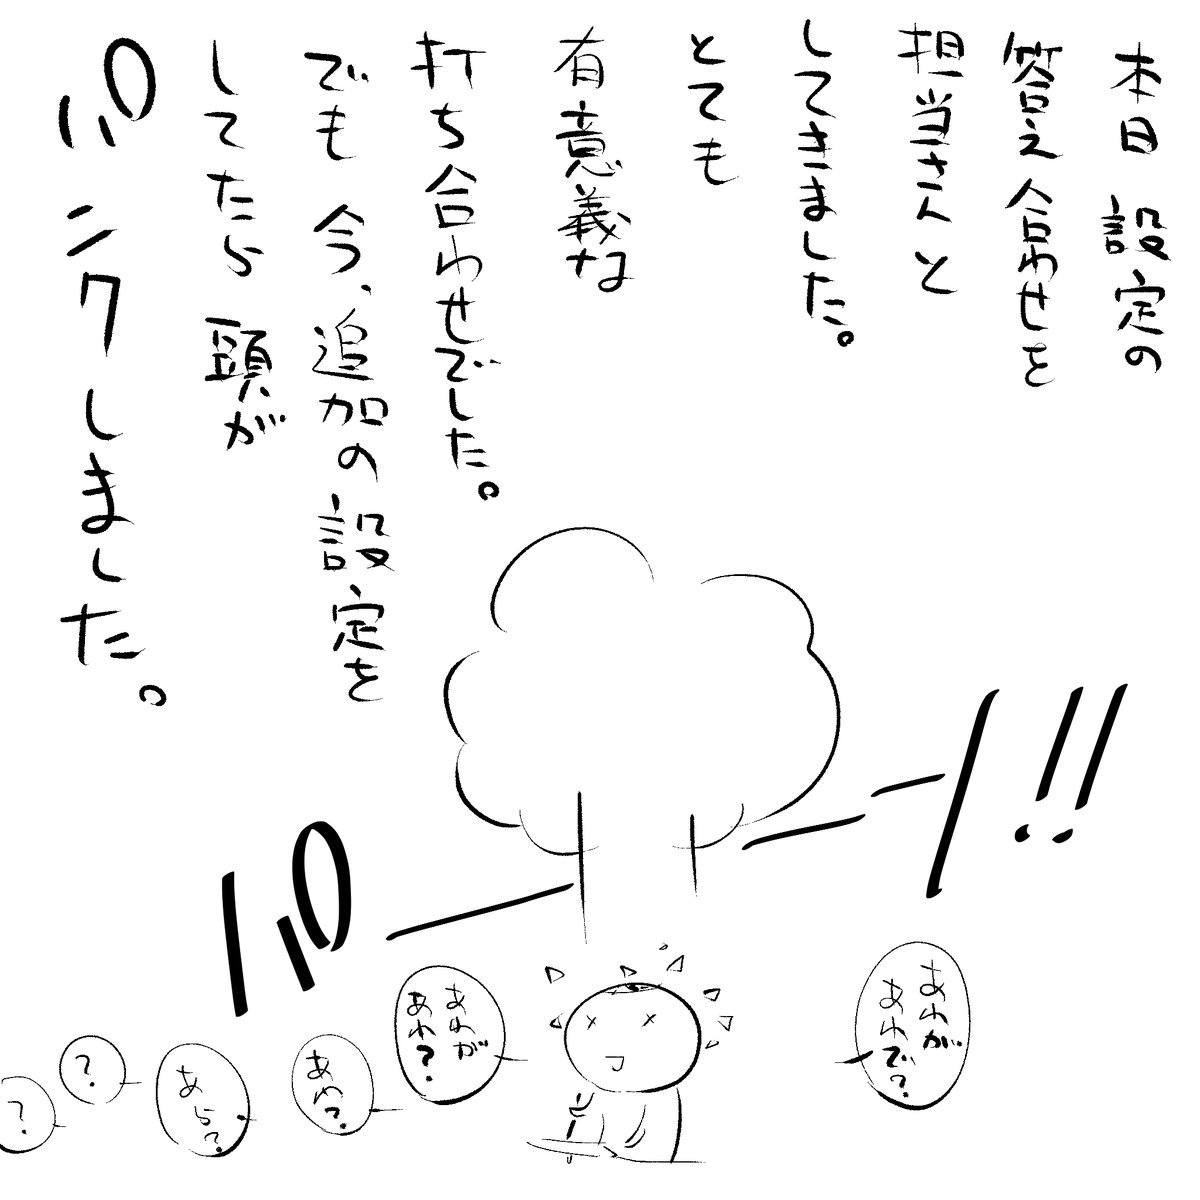 本日 設定の
答え合わせを
担当さんと
してきました。
とても
有意義な
打ち合わせでした。
でも 今、追加の設定を
してたら 頭が
パンクしました。
パーーーン!!
あれが
あれで?
あれが
あれ?
あれ?
あら?
?
?